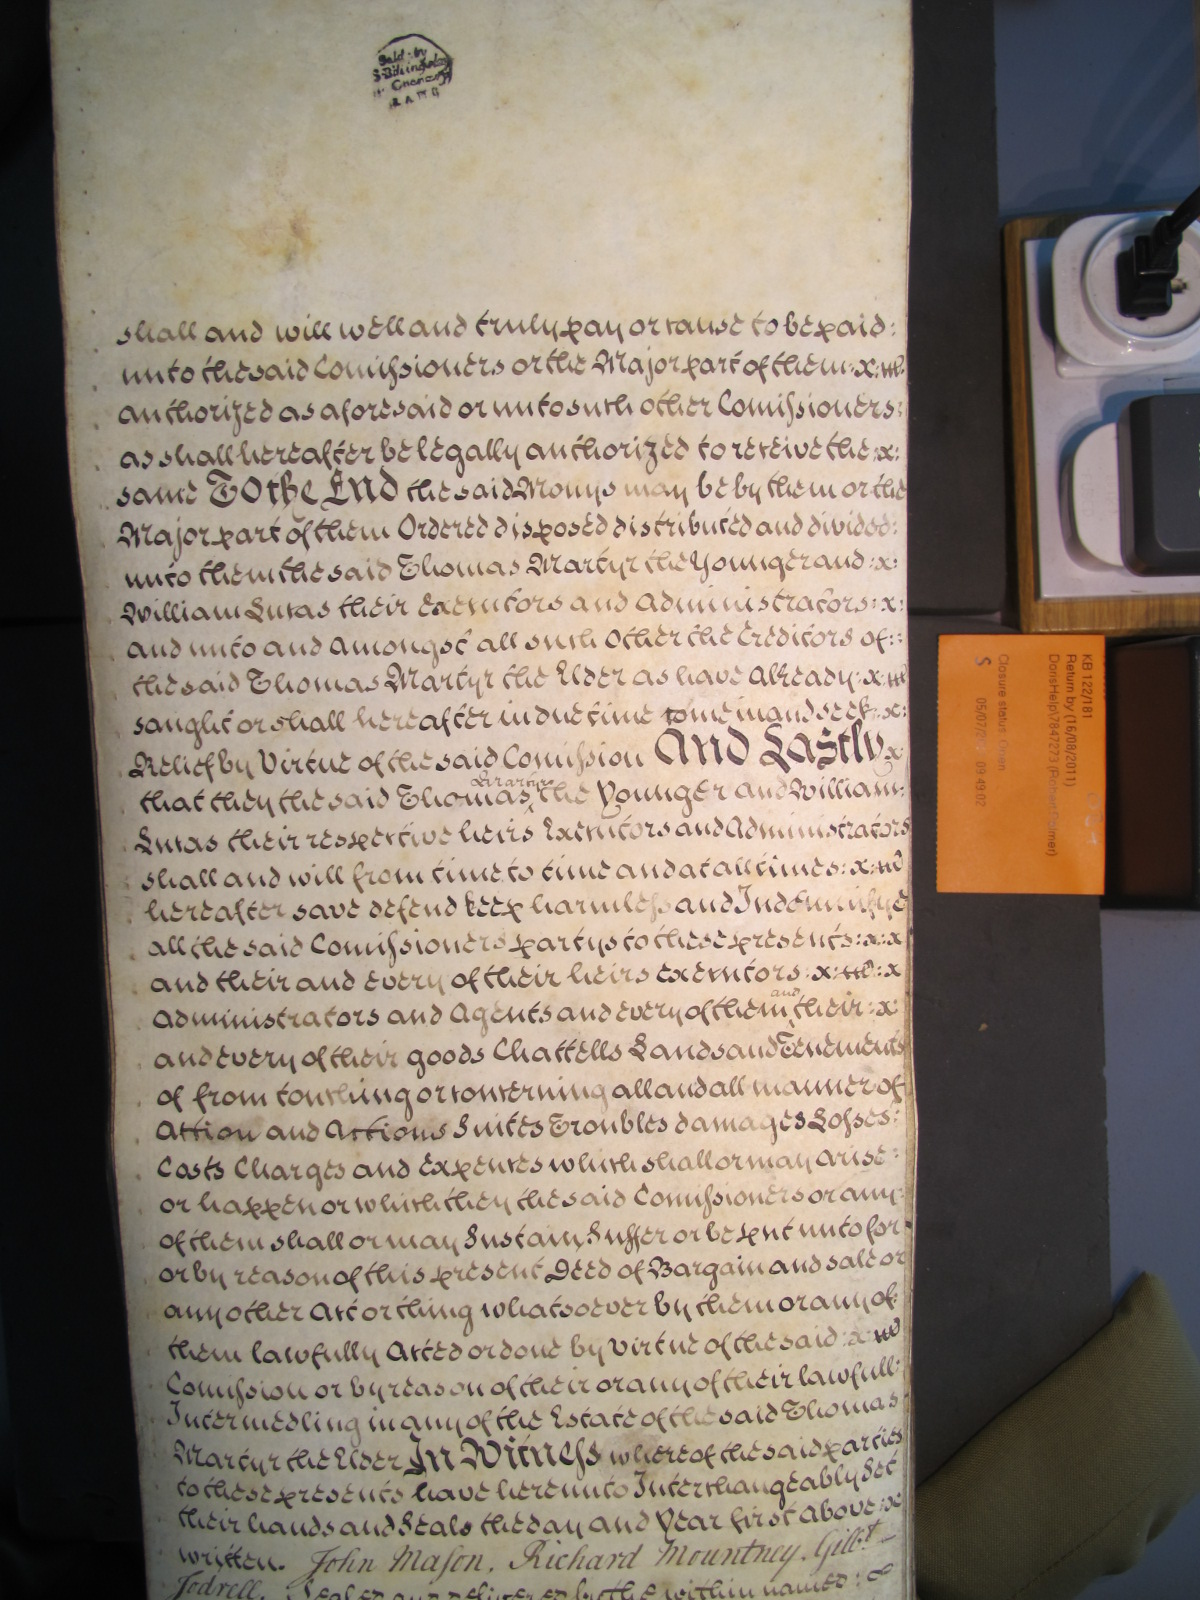 Sold by
shall and will well and truly pay or cause to be paid:
unto the said Comissioners or the Major part of them :x:
authorized as aforesaid or unto such other Comissioners:
as shall hereafter be legally authorized to receive the :x:
same To the End the said Monys may be by them or the
Major part of them Ordered disposed distributed and divided:
unto them the said Thomas Martyr the Younger and :x:
William Lucas their Executors and Administrators :x:
and unto and Amongst all such Other the Creditors of ::
the said Thomas Martyr the Elder as have Already :x:
saught or shall hereafter in due time come in and seek :x:
Relief by Virtue of the said Comission And Lastly x
that they the said Thomas Martyr the Younger and William:
Lucas their respective heirs Executors and Administrators
shall and will from time to time and at all times :x:
hereafter save defend keep harmless and Indemnifye
all the said Comissioners partys to these presents :x:x
and their and every of their heirs executors :x: :x
Administrators and Agents and every of them and their :x:
and every of their goods Chattells Lands and Tenements
of from touching or concerning all and all manner of
Action and Actions Suites Troubles damages Losses:
Costs Charges and expences which shall or may arise :
or happen or which they the said Comissioners or any
of them shall or may Sustain Suffer or be put unto for
or by reason of this present Deed of Bargain and sale or
any other Act or thing whatsoever by them or any of
them lawfully Acted or done by virtue of the said :x:
Comission or by reason of their or any of their lawfull:
Intermedling in any of the Estate of the said Thomas
Martyr the Elder In Witness whereof the said parties
to these presents have hereunto Interchangeably Set
their hands and Seals the day and Year first above :x
written. John Mason. Richard Mountney. Gilbt
Jodrell. Sealed and delivered by the within named :
KB 122/181
Return by (16/08/2011)
DorisHelp\7847273 (Robert Palmer)
Closure status: Open
S 05/07/ 09:49:02